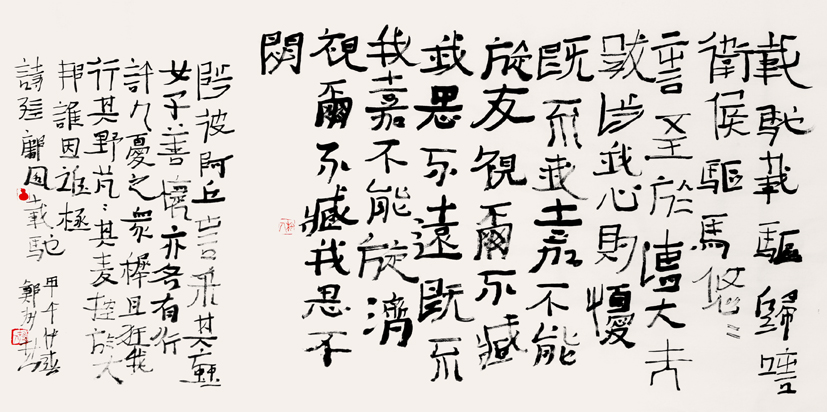 載馳載驅歸唁
衛侯驅馬悠〻
言至於漕大夫
跋涉我心則懮
既不我嘉不能
旋反視爾不臧
我思不遠既不
我嘉不能旋濟
視爾不臧我思不
閟
陟彼阿丘言采其蝱
女子善懷亦各有行
許人憂之衆穉且狂我
行其野芃〻其麥控於大
邦誰因誰極
詩經鄘風載馳 甲午